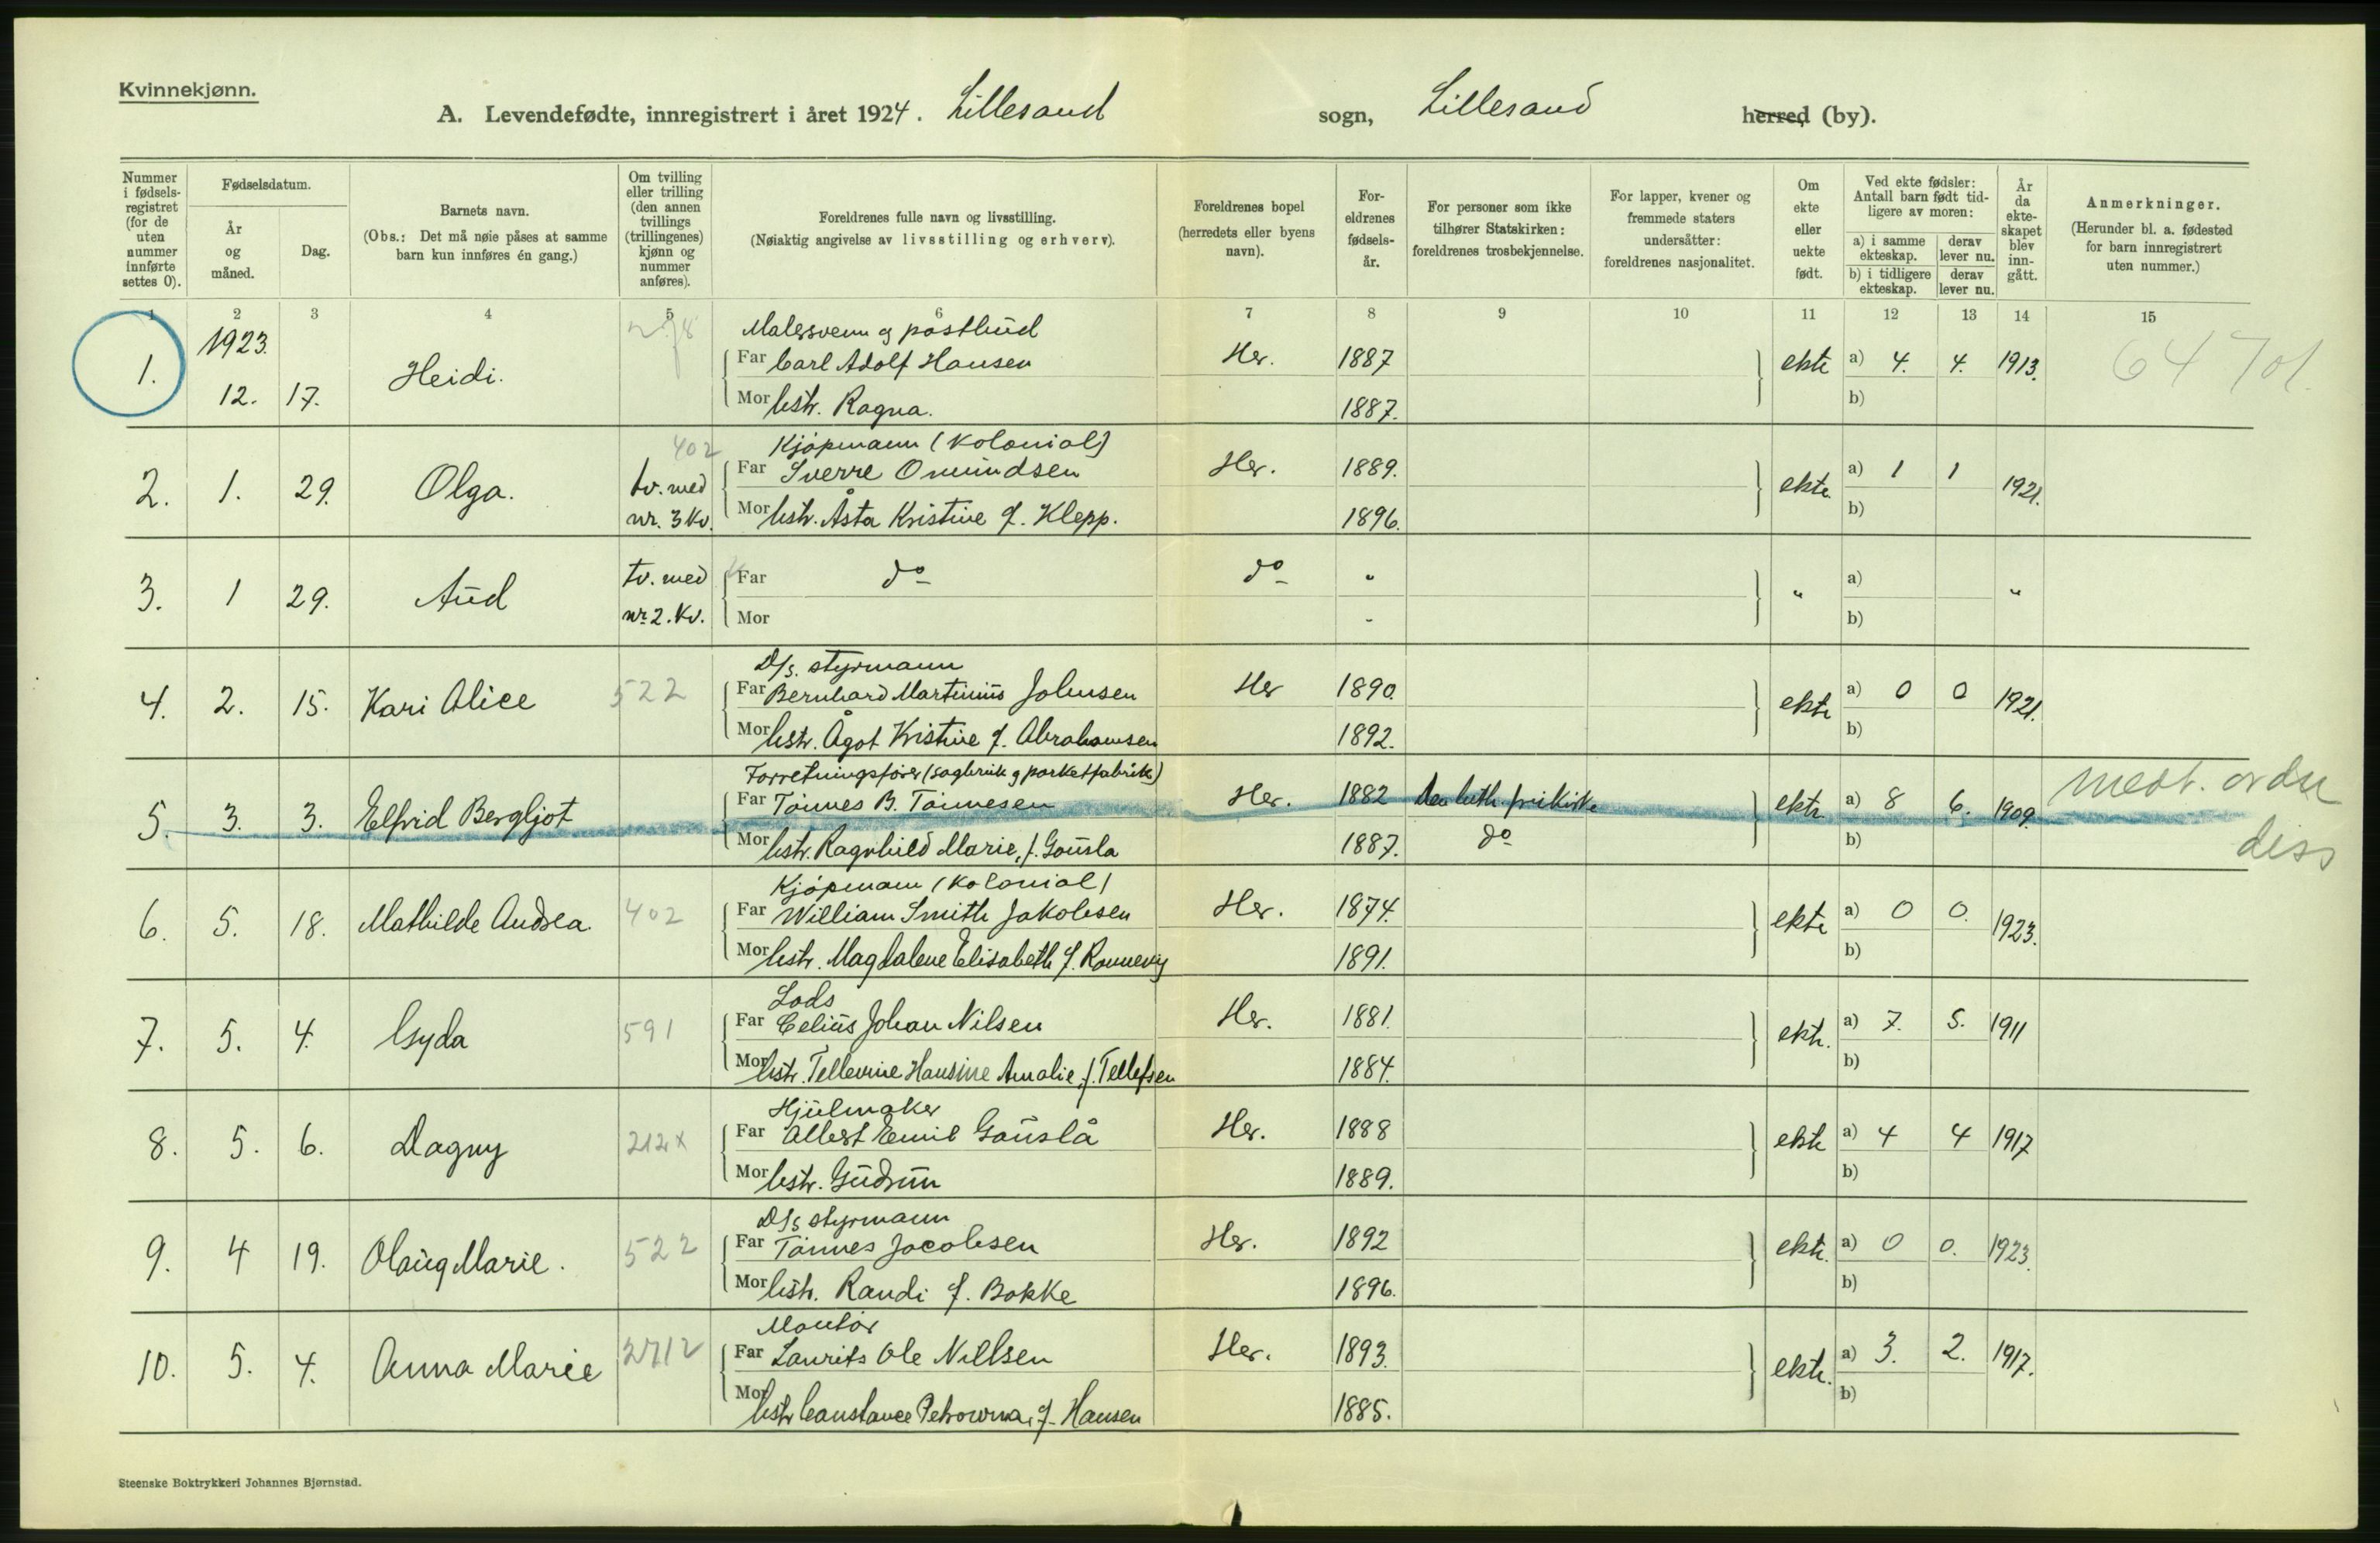 Kvinnekjønn.
A. Levendefødte, innregistrert i året 1924. Lillesand sogn, Lillesand herred (by).
Nummer i fødsels-registret (for de uten nummer innførte settes 0).
Fødselsdatum.
År og måned.
Dag.
Barnets navn.
(Obs.: Det må nøie påses at samme barn kun innføres én gang.)
Om tvilling eller trilling (den annen tvillings (trillingenes) kjønn og nummer anføres).
Foreldrenes fulle navn og livsstilling.
(Nøiaktig angivelse av livsstilling og erhverv).
Foreldrenes bopel (herredets eller byens navn).
For-eldrenes fødsels-år.
For personer som ikke tilhører Statskirken: foreldrenes trosbekjennelse.
For lapper, kvener og fremmede staters undersåtter: foreldrenes nasjonalitet.
Om ekte eller uekte født.
Ved ekte fødsler: Antall barn født tid-ligere av moren:
a) i samme ekteskap. derav lever nu.
b) i tidligere ekteskap. derav lever nu.
År da ekte-skapet blev inn-gått.
Anmerkninger.
(Herunder bl. a. fødested for barn innregistrert uten nummer.)
1 2 3 4 5 6 7 8 9 10 11 12 13 14 15
1923. Malersvenn og postbud
1. 12. 17. Heidi. Far Carl Adolf Hansen Her. 1887 ekte a) 4. 4. 1913.
Mor Hstr. Ragna. 1887. b)
402 Kjøpmann (Kolonial)
2. 1. 29. Olga. tv. med nr. 3 Kv. Far Sverre Omundsen Her. 1889. ekte a) 1 1 1921.
Mor Hstr. Åsta Kristine f. Klepp. 1896. b)
3. 1 29. Aud tv. med nr. 2. Kv. Far do do " " a) "
Mor - b)
D/s. styrmann
4. 2. 15. Kari Alice 522 Far Bernhard Martinius Johnsen Her 1890. ekte a) 0 0 1921.
Mor Hstr. Ågot Kristine f. Abrahamsen 1892. b)
Forretningsfører (sagbruk og parketfabrik)
5. 3. 3. Elfrid Bergljot Far Tønnes B. Tønnesen Her. 1882 Den luth. frikirke ekte a) 8 6. 1909.
Mor Hstr. Ragnhild Marie, f. Gausla 1887. do b)
diss
Kjøpmann (Kolonial)
6. 5. 18. Mathilde Andrea. 402 Far William Smith Jakobsen Her. 1874. ekte a) 0 0. 1923.
Mor Hstr. Magdalene Elisabeth f. Rønnevig 1891. b)
Lods
7. 5. 4. Gyda 591 Far Celius Johan Nilsen Her. 1881. ekte. a) 7. 5. 1911
Mor Hstr. Tellevine Hansine Amalie, f. Tellefsen 1884. b)
Hjulmaker
8. 5. 6. Dagny 212x Far Albert Emil Gauslå Her. 1888 ekte a) 4 4 1917
Mor Hstr. Gudrun 1889. b)
D/s styrmann
9. 4 19. Olaug Marie. 522 Far Tønnes Jacobsen Her. 1892 ekte. a) 0 0. 1923.
Mor Hstr. Randi f. Bakke 1896. b)
Montør
10. 5. 4. Anna Marie Far Laurits Ole Nielsen Her. 1893. ekte. a) 3. 2. 1917.
Mor Hstr Constance Petrowna, f. Hansen 1885. b)
Steenske Boktrykkeri Johannes Bjørnstad.